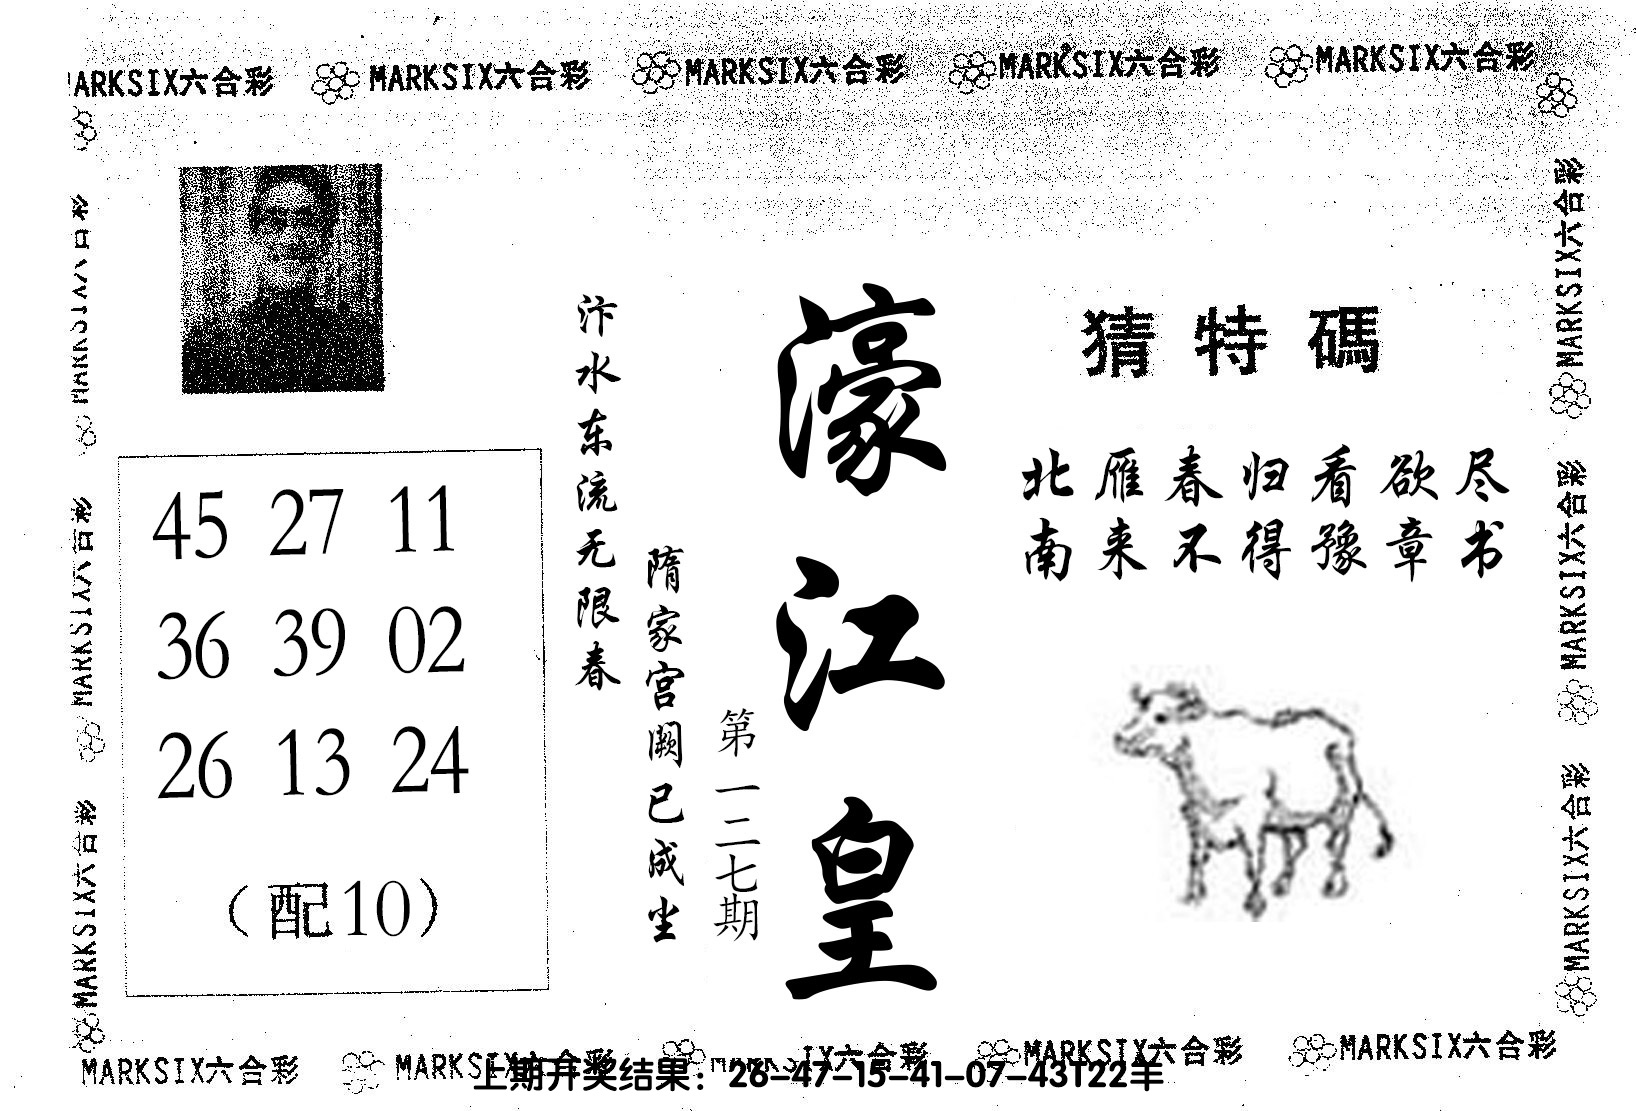 MARKSIX六合彩 MARKSIX六合彩 MARKSIX六合彩 MARKSIX六合彩
MARKSIX六合彩
MARKSIX六合彩
MARKSIX六合彩
MARKSIX六合彩
MARKSIX六合彩
45 27 11
36 39 02
26 13 24
（配10）
汴水东流无限春
隋家宫阙已成尘
第一二七期
濠江皇
猜特碼
北雁春归看欲尽
南来不得豫章书
MARKSIX六合彩 MARKSIX六合彩 MARKSIX六合彩 MARKSIX六合彩
上期开奖结果：26-47-15-41-07-43T22羊